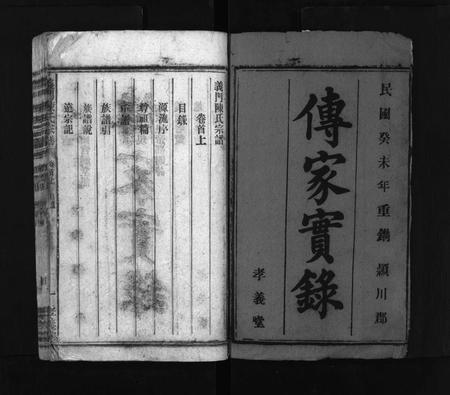 民國癸未年重鐫 潁川郡
傳家實錄
孝義堂
義門陳氏宗譜
卷首上
目錄
源流序
宗譜
族譜引
族譜說
遺宗記